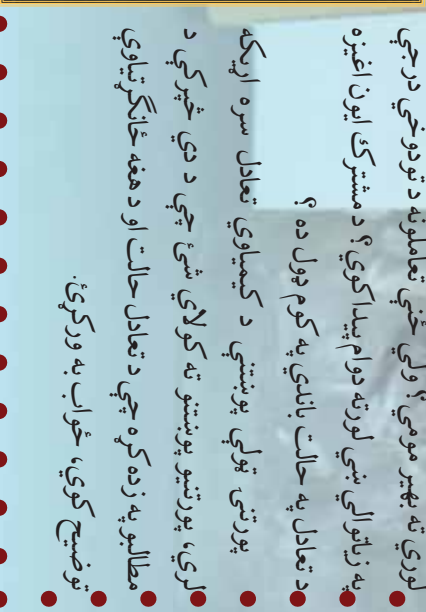 لوري ته بهير مومي؟ ولي ځني تعاملونه د تودوخي درجي
په زياتوالي ښي لورته دوام پيدا کوي؟ د مشترک ايون اغيزه
د تعادل په حالت باندي په کوم ډول ده؟
پورتنۍ ټولي پوښتني د کيمياوي تعادل سره اړيکه
لري، پورتنيو پوښتنو ته کولای شئ چي د دې څپرکي د
مطالبو په زده کړه چي د تعادل حالت او د هغه ځانګړتياوي
توضيح کوي، ځواب به ورکړئ.